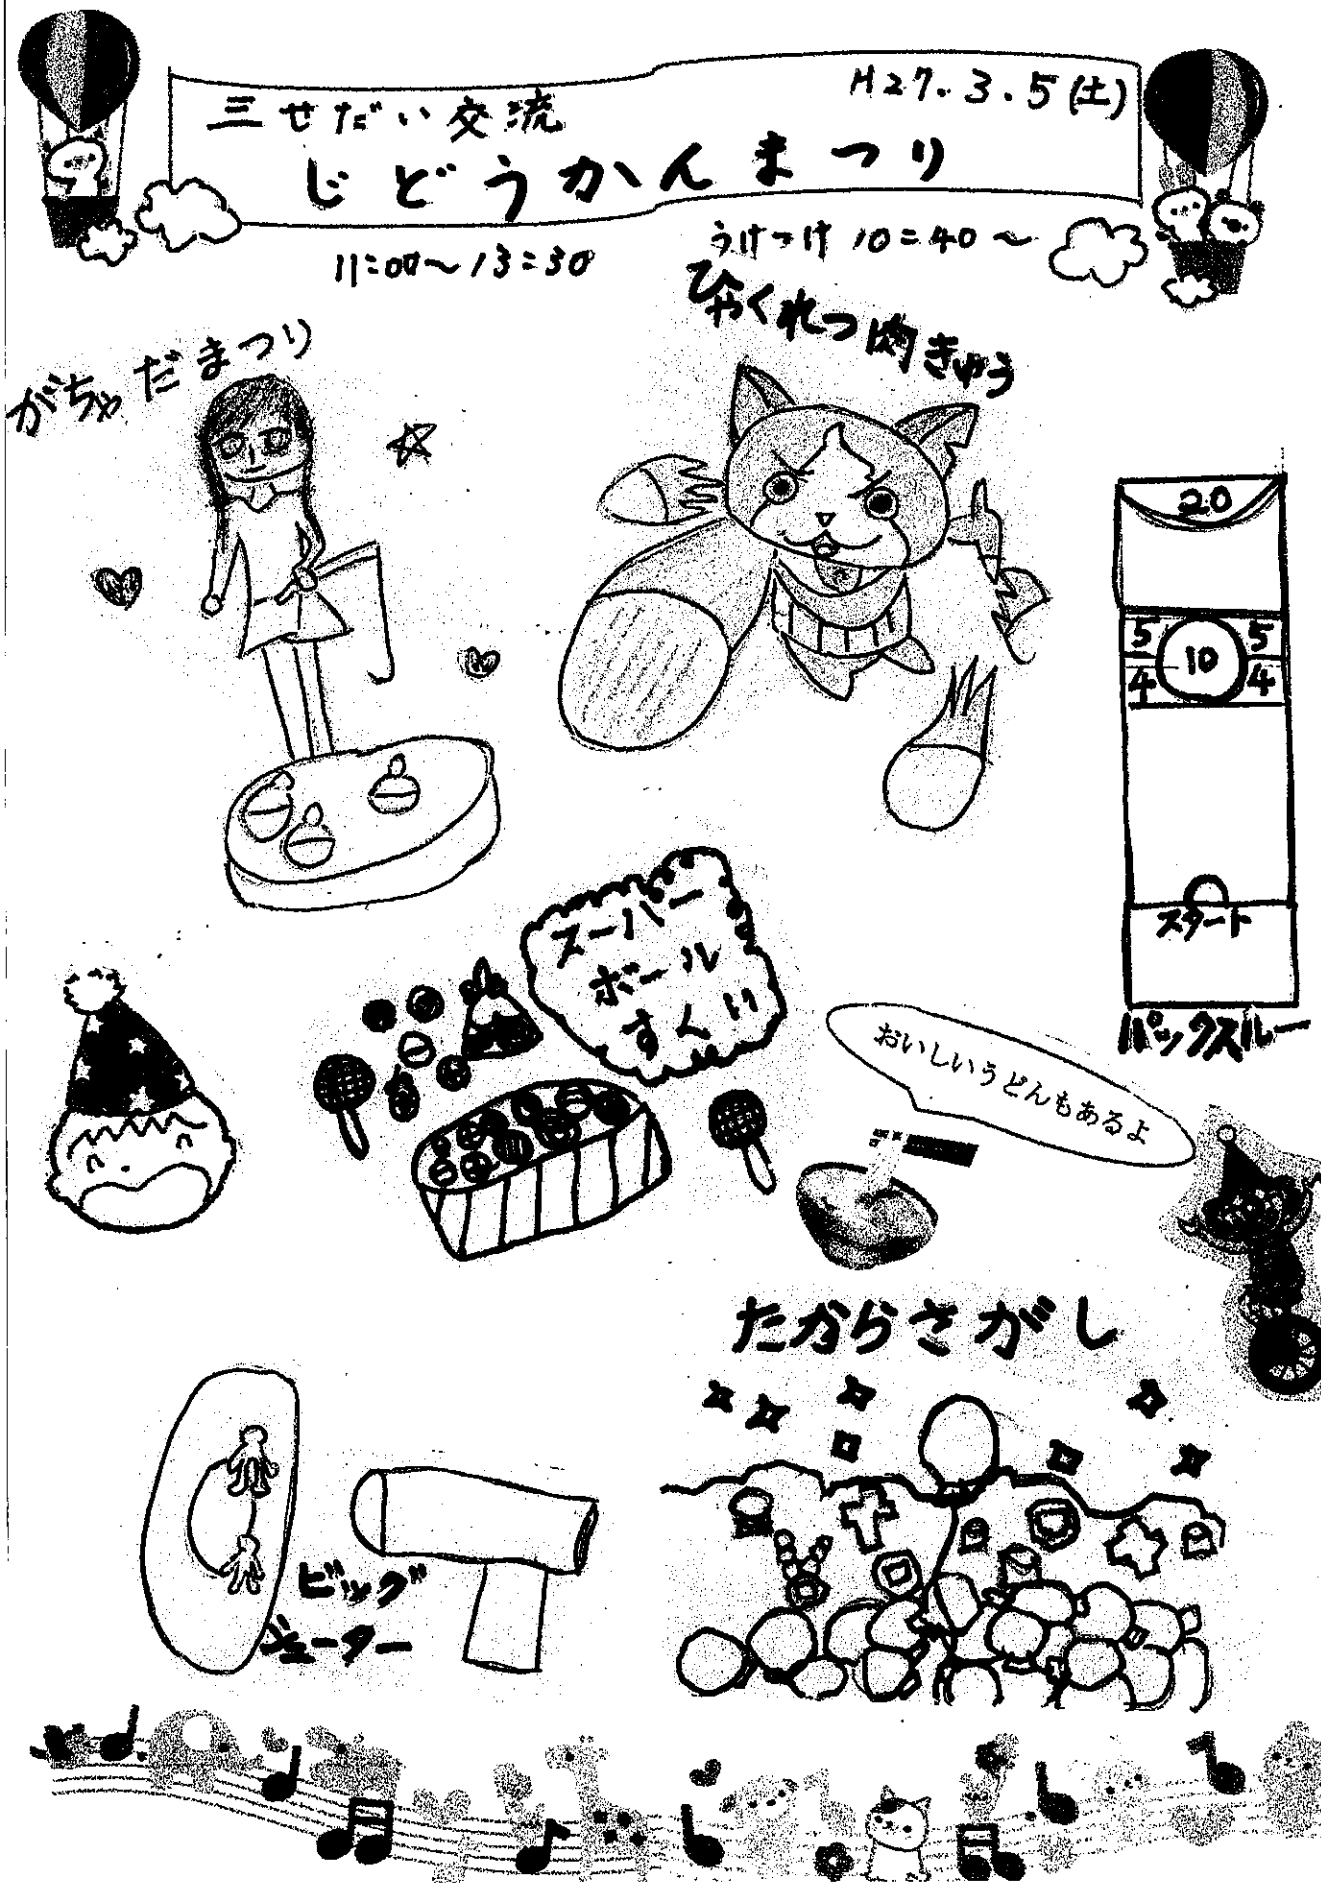 三せだい交流
H27.3.5(土)
じどうかんまつり
11:00〜13:30
うけつけ 10:40〜
がちゃだまつり
ひゃくれつ肉きゅう
20
5 10 5
4 4
スタート
パックスルー
スーパー
ボール
すくい
おいしいうどんもあるよ
たからさがし
ビッグ
シューター